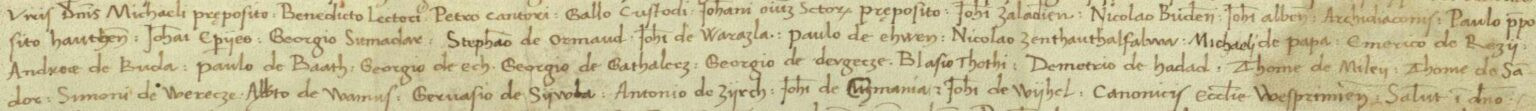 Vrīs Dnīs Michaeli preposito · Benedicto Lectori · Petro cantori · Gallo Custodi · Johani oīuꝫ Sctorꝝ preposito · Johī Zaladien · Nicolao Buden · Johī alben · Archidiaconis · Paulo ppo
sito hanthen · Johāi · Georgio Sumadar · Stephāo de Ormand · Johī de Warazla · Paulo de ehwen · Nicolao Zenthauthalfalwa · Michaeli de papa · Emerico de Rezy ·
Andree de Buda · Paulo de Baath · Georgio de ech · Georgio de Gathalecz · Georgio de dergecze · Blasio Thothi · Demetrio de hadad · Thome de Miley · Thome de Sā
dor · Simoni de Werecze · Albto de Wamus · Gervasio de Sywla · Antonio de Zyrch · Johī de Cumania ⁊ Johī de Wyhel · Canonicis Ecclīe Wesprimien · Salut ī dno ·